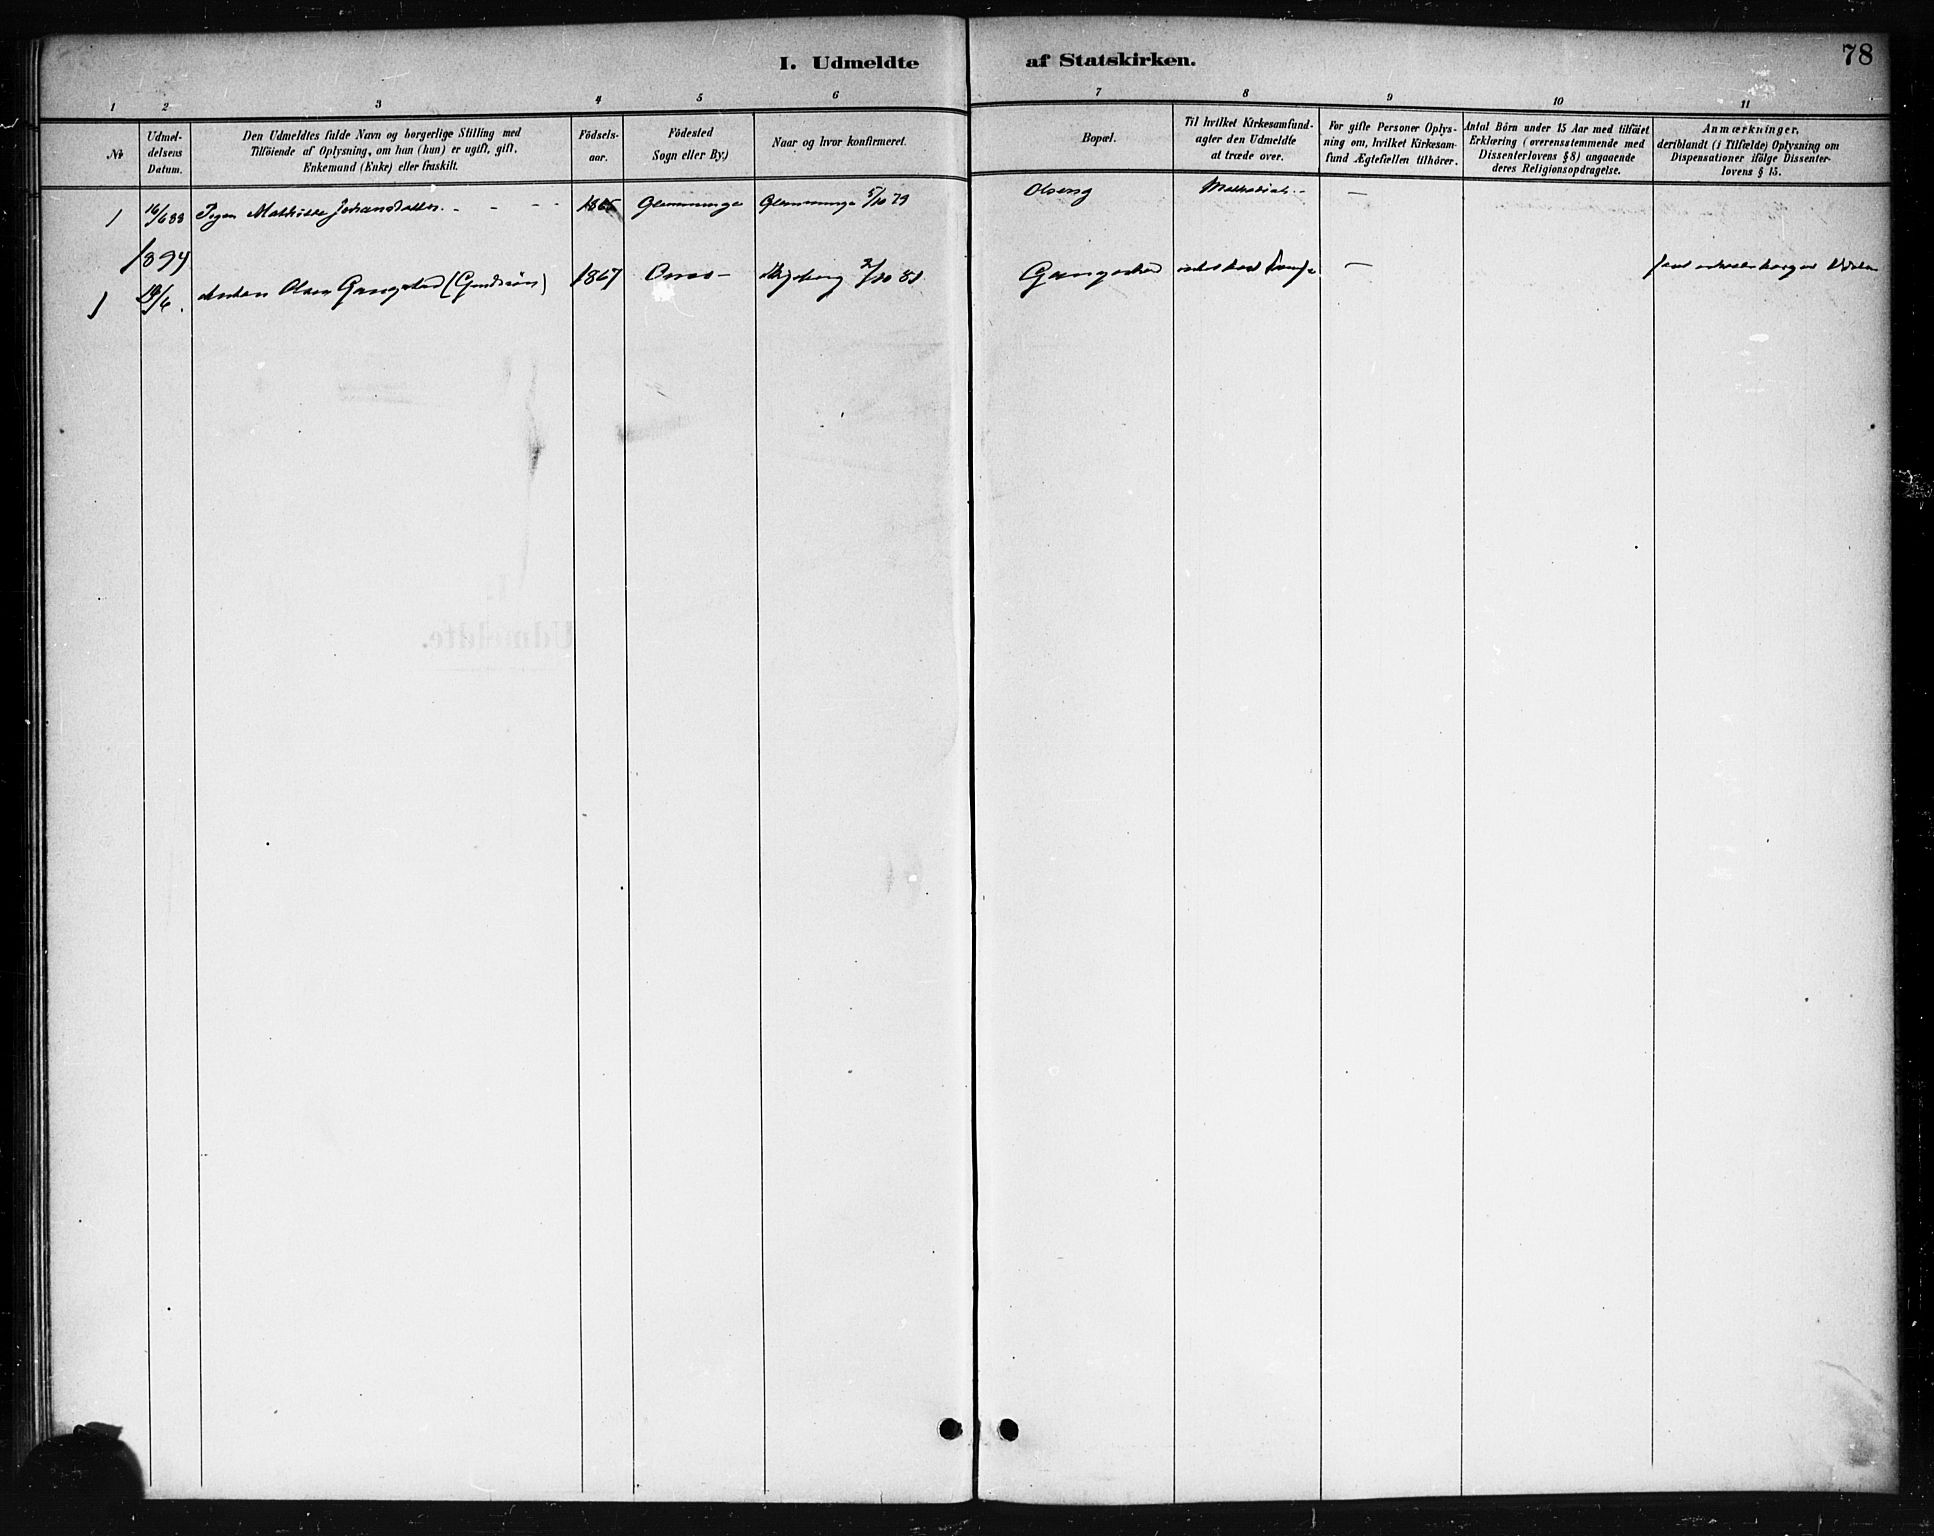 I. Udmeldte af Statskirken. 78
1 2 3 4 5 6 7 8 9 10 11
No
Udmeldelsens Datum.
Den Udmeldtes fulde Navn og borgerlige Stilling med
Tilföiende af Oplysning, om han (hun) er ugift, gift,
Enkemand (Enke) eller fraskilt.
Födselsaar.
Födested
Sogn eller By.)
Naar og hvor konfirmeret.
Bopæl.
Til hvilket Kirkesamfund
agter den Udmeldte
at træde over.
For gifte Personer Oplysning om, hvilket Kirkesamfund Ægtefællen tilhörer.
Antal Börn under 15 Aar med tilföiet
Erklæring (overensstemmende med
Dissenterlovens § 8) angaaende
deres Religionsopdragelse.
Anmærkninger,
deriblandt (i Tilfælde) Oplysning om
Dispensationer ifölge Dissenterlovens § 15.
1 16/6 88 Mathilde Johansdatter. - - - - 1865 Glemminge Glemminge 5/10 79 Olseng Methodist. - —
1894
1 19/6. Olsen Gangestad 1867 2/10 81 Gangestad —